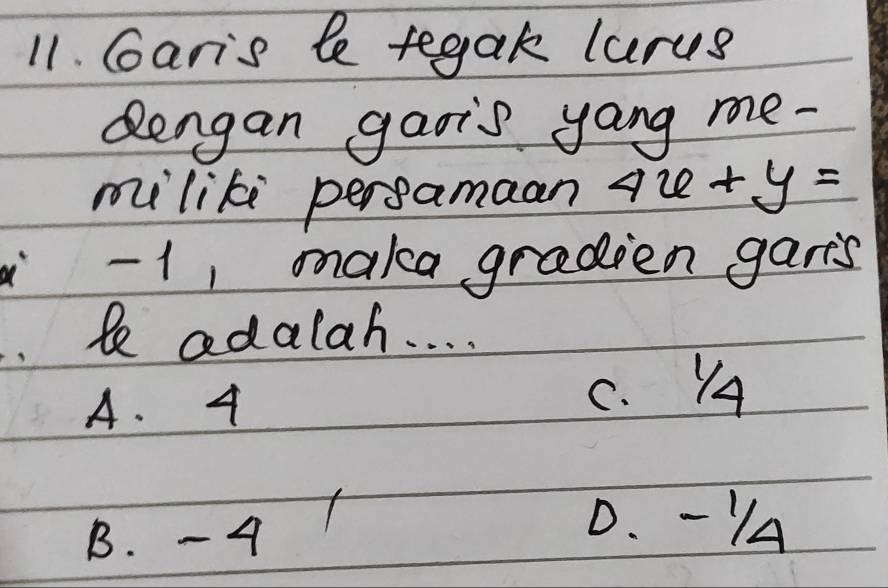 11. Garis k tegak lurus
dengan garis yang me-
miliki persamaan 4x + y =
-1, maka gradien garis
k adalah....
A. 4 C. 1/4
B. -4 D. -1/4